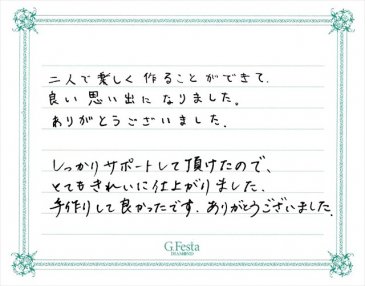 二人で楽しく作ることができて、
良い思い出になりました。
ありがとうございました。
しっかりサポートして頂けたので、
とてもきれいに仕上がりました。
手作りして良かったです。ありがとうございました。
G.Festa
DIAMOND